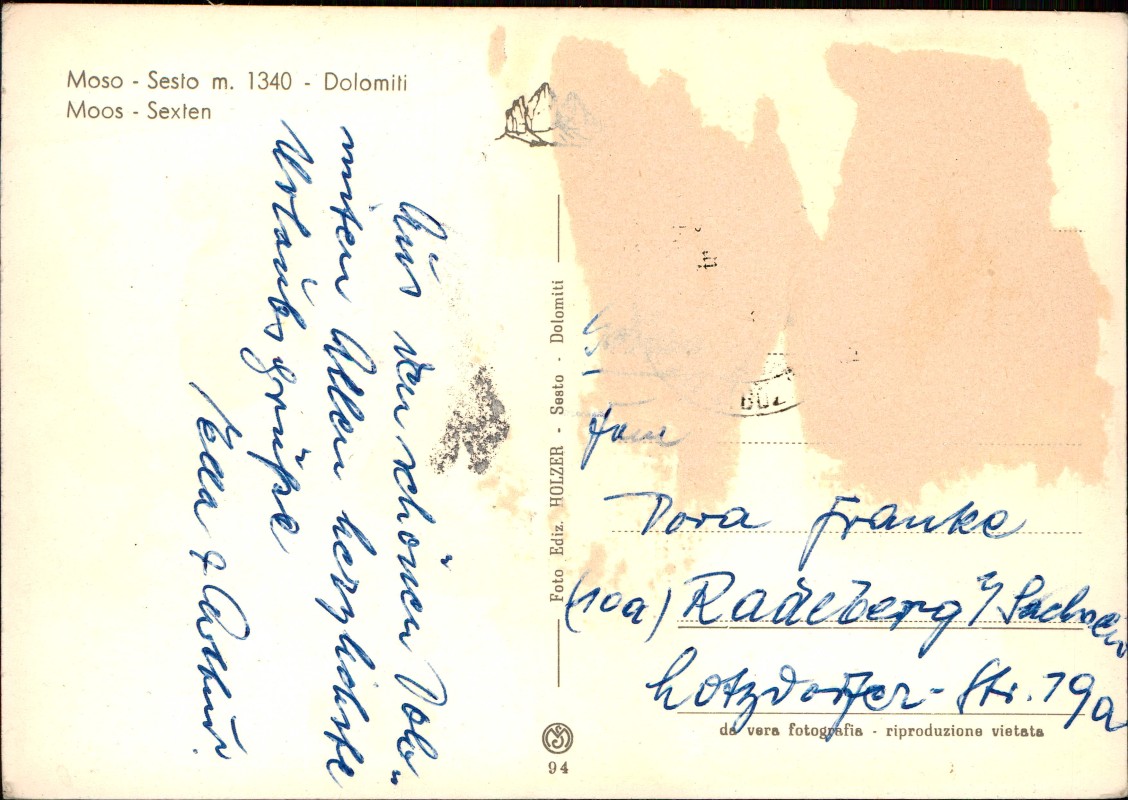 Moso - Sesto m. 1340 - Dolomiti
Moos - Sexten
Aus den schönen Dolo„
miten Allen herzlichste
Urlaubsgrüße
Edda & Arthur.
Foto Ediz. HOLZER - Sesto - Dolomiti
94
BOZ
Fam
Dora Franke
(10a) Radeberg i/Sachsen
Lotzdorfer-Str. 19a
da vera fotografia - riproduzione vietata